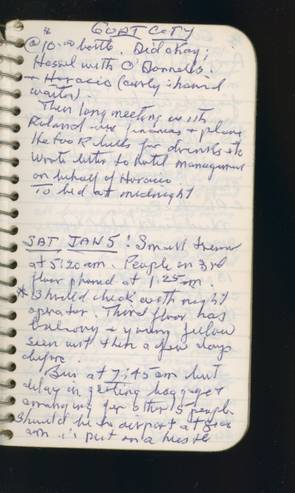 GUAT CITY
@ 10:00 bottle. Did okay;
Hassel with O'Donnells.
+ Horacio (curly-haired
waiter).
Then long meeting with
Roland finances + plans
He took bills for drinks etc
Wrote letter to hotel management
on behalf of Horacio
To bed at midnight
SAT JAN 5! Small tremor
at 5:20 am. People on 3rd
floor phoned at 1:25 am.
* Should check with night
operator. Third floor has
balcony + young fellow
seen with a few days
before.
Bus at 7:45 am but
delay in getting baggage +
arranging for other 5 people
Should be in airport at
am is put on a hustle